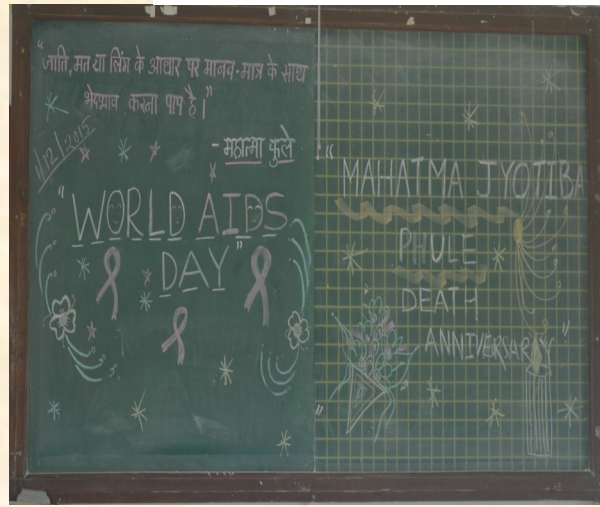 "जाति, मत या लिंग के आधार पर मानव-मात्र के साथ
भेदभाव करना पाप है।"
- महात्मा फुले
1/12/2015
"WORLD AIDS
DAY"
"MAHATMA JYOTIBA
PHULE
DEATH
ANNIVERSARY"